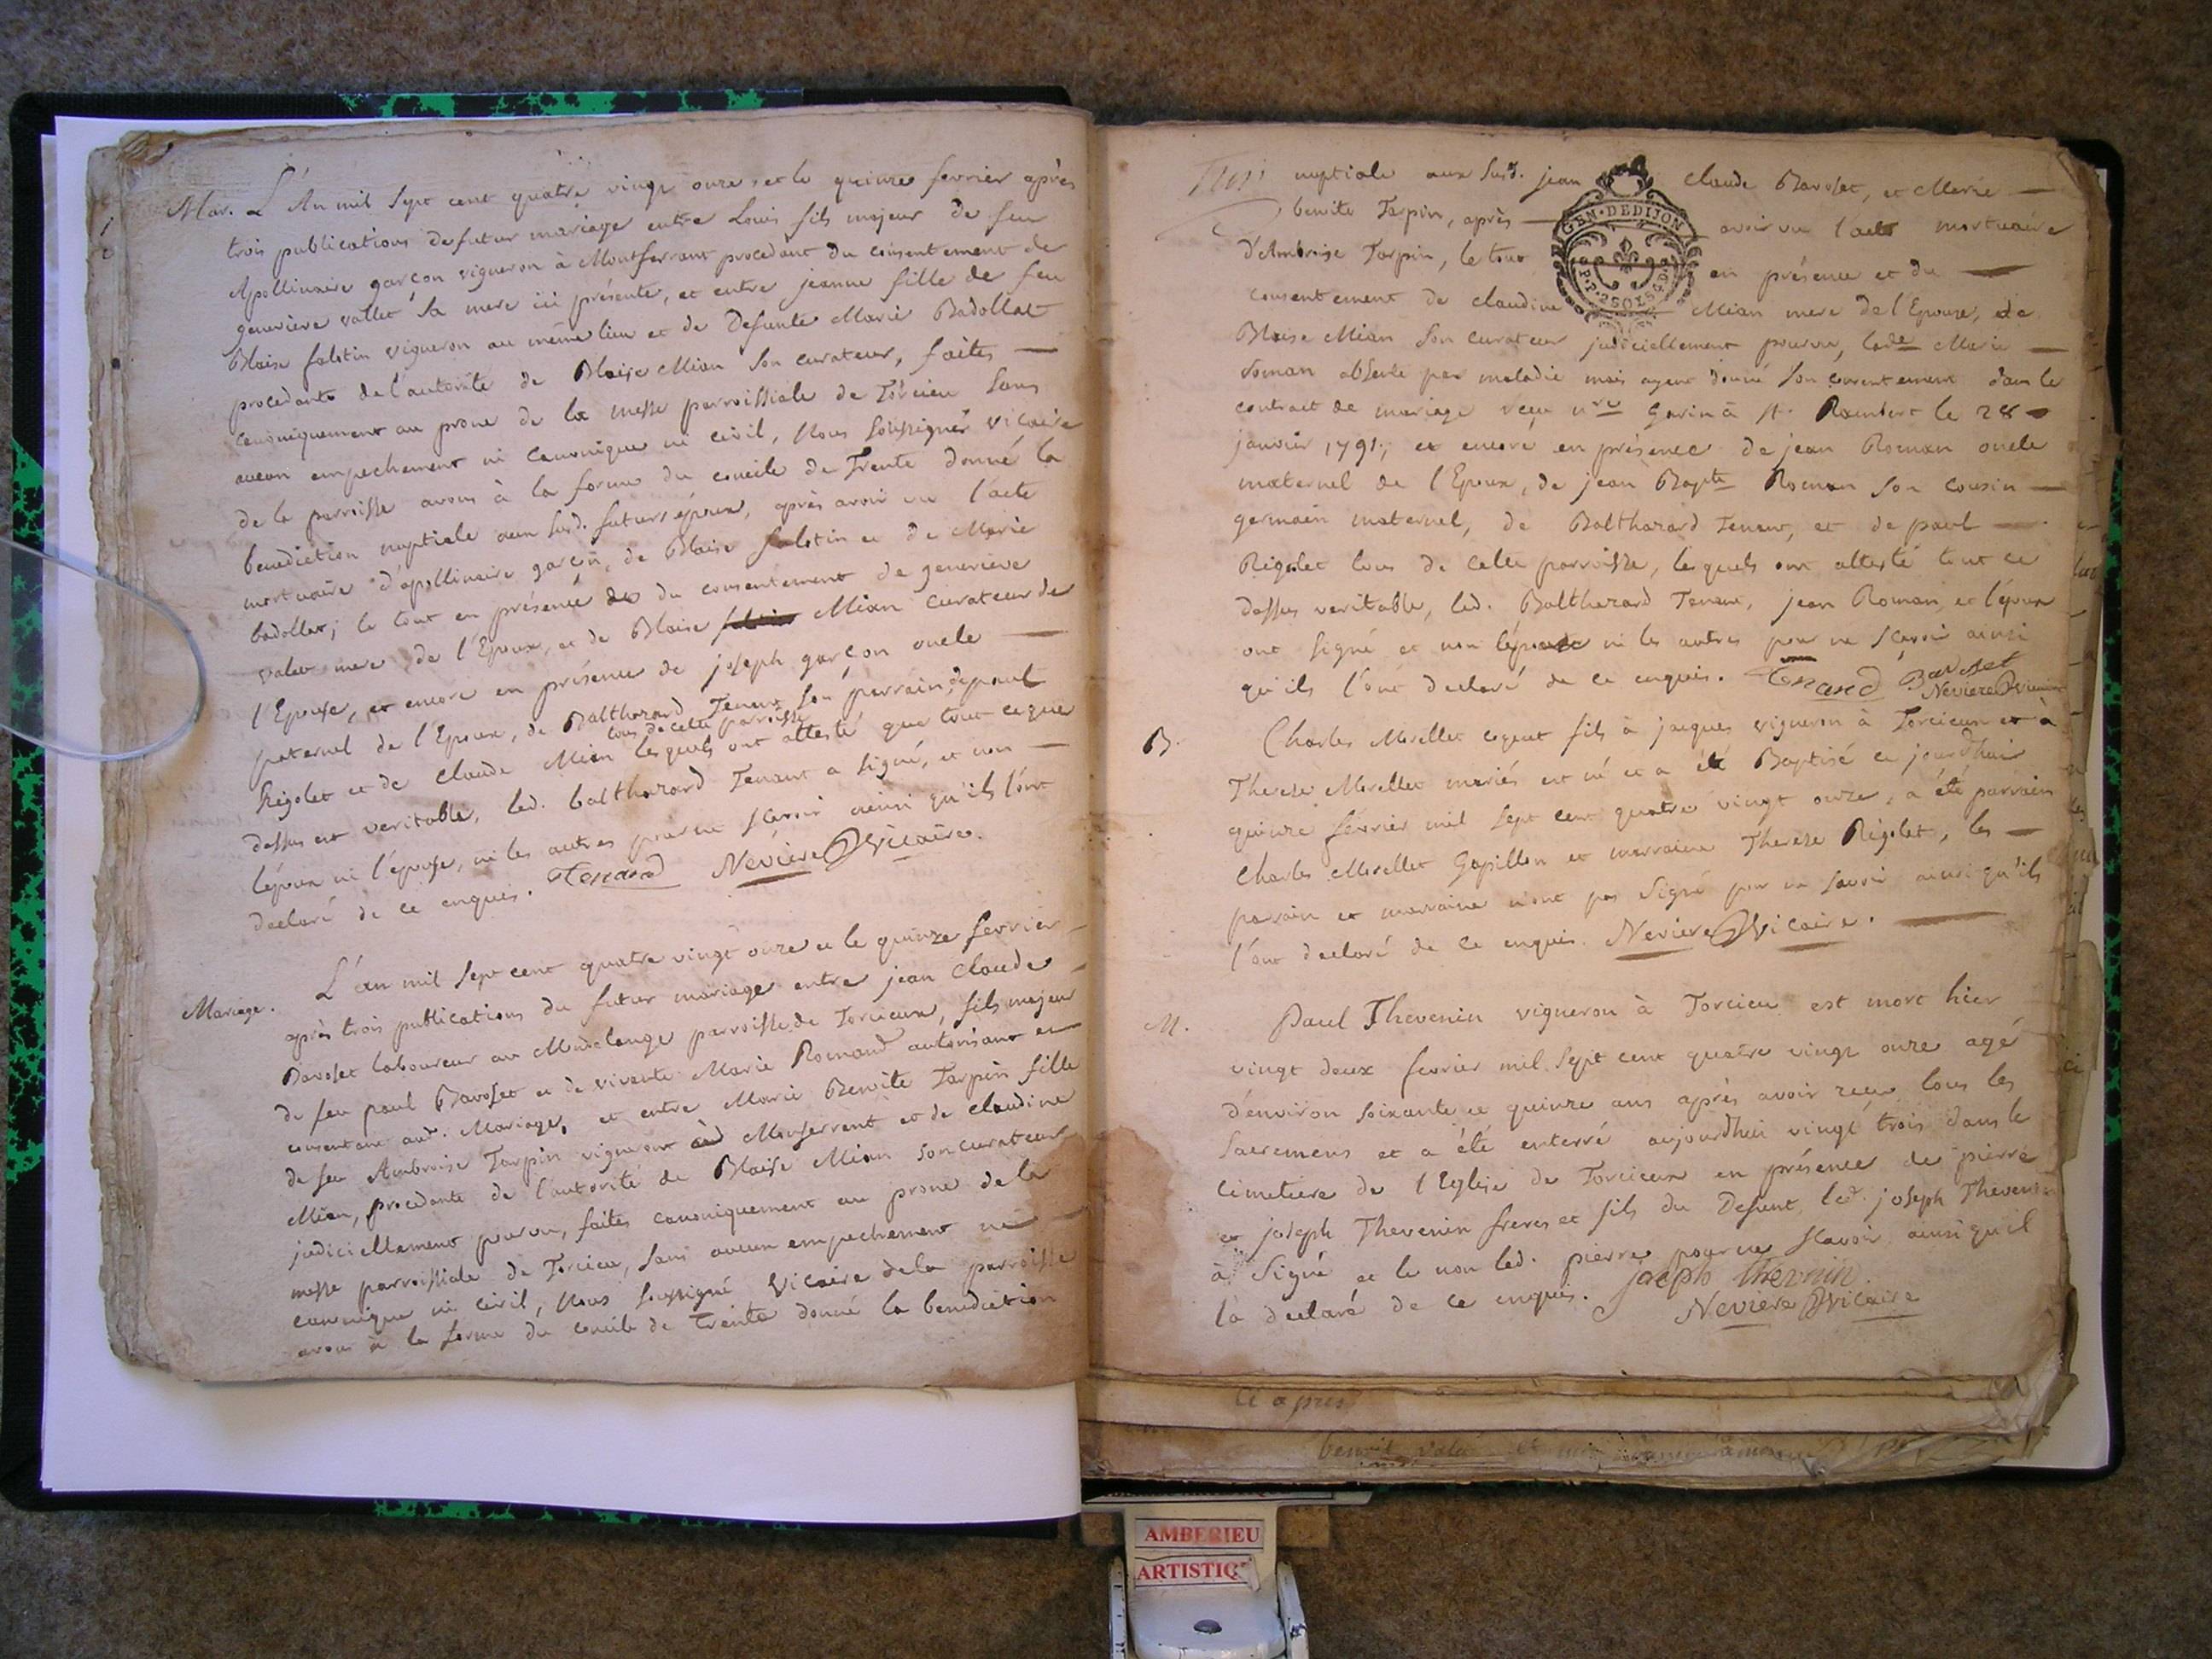 Mar. L'An mil sept cent quatre vingt onze, et le quinze fevrier après
trois publications de futur mariage entre Louis fils majeur de feu
Apollinaire garçon vigneron à Montferrant procedant du consentement de
genevieve vallet sa mere ici présente, et entre jeanne fille de feu
Blaise falstin vigneron au même lieu et de Defunte Marie Badollat
procedante de l'autorité de Blaise Mian son curateur, faites
canoniquement au prone de la messe parroissiale de Torcieu sans
aucun empechement ni canonique ni civil, Nous soussigner vicaire
de la parroisse avons à la forme du concile de Trente donné la
benediction nuptiale aux susd. futurs époux, après avoir vu l'acte
mortuaire d'apollinaire garçon, de Blaise falstin et de Marie
badollat; le tout en présence du consentement de genevieve
valet mere de l'Epoux, et de Blaise Mian curateur de
l'Epouse, et encore en présence de joseph garçon oncle
paternel de l'Epoux, de Balthazard Tenant son parrain, de paul
Rigolet et de Claude Mian tous de cette parroisse lesquels ont attesté que tout ce que
dessus est veritable, led. balthazard Tenant a signé, et non
l'époux ni l'épouse, ni les autres pour ne scavoir ainsi qu'ils l'ont
declaré de ce enquis. Tenand Neviere Vicaire.
Mariage. L'an mil sept cent quatre vingt onze et le quinze fevrier
après trois publications du futur mariage entre jean Claude
Bavoset laboureur au parroisse de Torcieux, fils majeur
de feu paul Bavoset et de vivante Marie Romand autorisant et
consentant aud. Mariage, et entre Marie Benoite Tarpin fille
de feu Ambroise Tarpin vigneron à Monferrent et de claudine
Mian, procedante de l'autorité de Blaise Mian son curateur
judiciellement pourvu, faites canoniquement au prone de la
messe parroissiale de Torcieu, sans aucun empechement ni
canonique ni civil, Nous soussigné Vicaire de la parroisse
avons à la forme du concile de Trente donné la benediction
nuptiale aux susd. jean claude Bavoset, et Marie
benoite Tarpin, après avoir vu l'acte mortuaire
d'Ambroise Tarpin, le tout en présence et du
consentement de claudine Mian mere de l'Epouse, de
Blaise Mian son curateur judiciellement pourvu, lade Marie
Roman absente par maladie mais ayant donné son consentement dans le
contract de mariage reçu Garin à st. Rambert le 28
janvier 1791; et encore en présence de jean Roman oncle
maternel de l'Epoux, de jean Bapte Roman son cousin
germain maternel, de Balthazard Tenant, et de paul
Rigolet tous de cette parroisse, lesquels ont attesté tout ce
dessus veritable, led. Balthazard Tenant, jean Roman, et l'époux
ont signé et non l'épouse ni les autres pour ne scavoir ainsi
qu'ils l'ont declaré de ce enquis. Tenand Bavoset
Neviere Vicaire
GEN·DE DIJON
B. Charles Morellet fils à jacques vigneron à Torcieux et à
Thereze Morellet mariés est né et a été Baptisé ce jourd'huir
quinze février mil sept cent quatre vingt onze, a été parrain
Charles Morellet Gapillon et marraine Thereze Rigolet, les
parrain et marraine n'ont pas signé pour ne savoir ainsi qu'ils
l'ont declaré de ce enquis. Neviere Vicaire.
M. Paul Thevenin vigneron à Torcieu est mort hier
vingt deux fevrier mil sept cent quatre vingt onze agé
d'environ soixante et quinze ans après avoir reçu tous les
sacremens et a été enterré aujourdhui vingt trois dans le
cimetiere de l'Eglise de Torcieux en présence de pierre
et joseph Thevenin freres et fils du Defunt led. joseph Thevenin
à signé et le non led. pierre pour ne scavoir ainsi qu'il
là declaré de ce enquis. joseph thevenin
Neviere Vicaire
Ci apres
AMBERIEU
ARTISTIQ